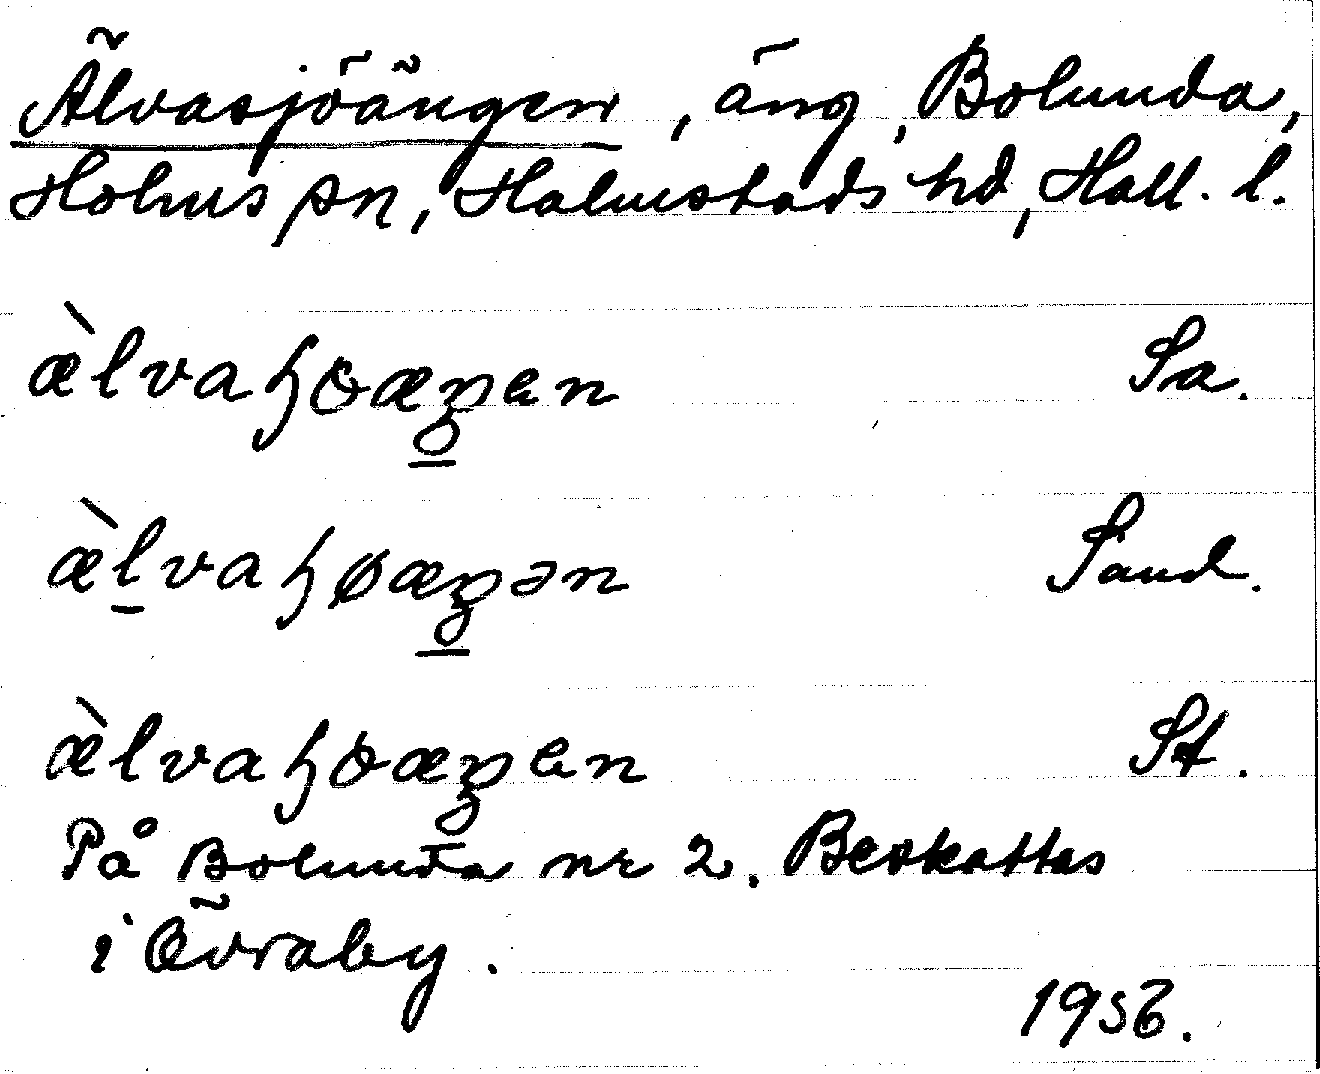 Älvasjöängen, äng, Bolunda,
Holms sn, Halmstads hd, Hall. l.
æ̀lvaɧɵæŋen Sa.
æ̀l̠vaɧøæŋən Sand.
æ̀lvaɧɵæŋen St.
På Bolunda nr 2. Beskattas
i Övraby.
1956.